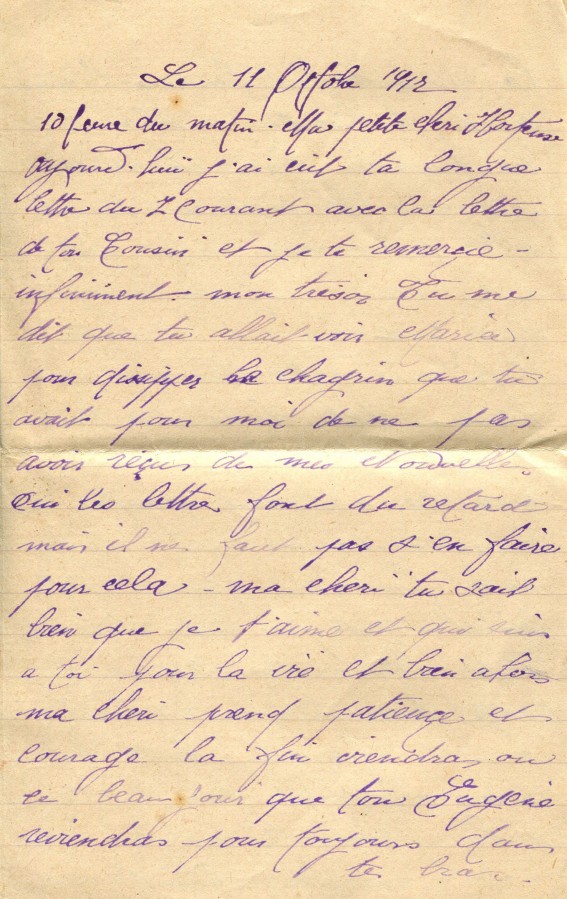 Le 11 Octobre 1917
10 heure du matin. Ma petite cheri Hortense
aujourd'hui j'ai eut ta longue
lettre du 7 courant avec la lettre
de ton Cousin et je te remercie
infiniment. mon tresor Tu me
dit que tu allait voir Maria
pour dissipper le chagrin que tu
avait pour moi de ne pas
avoir reçus de mes Nouvelles
Oui les lettre font du retard
mais il ne faut pas s'en faire
pour cela - ma cheri tu sait
bien que je t'aime et qui suis
a toi pour la vie et bien alors
ma cheri prend patience et
courage la fin viendras ou
ce beau jour que ton Eugène
reviendras pour toujours dans
tes bras.